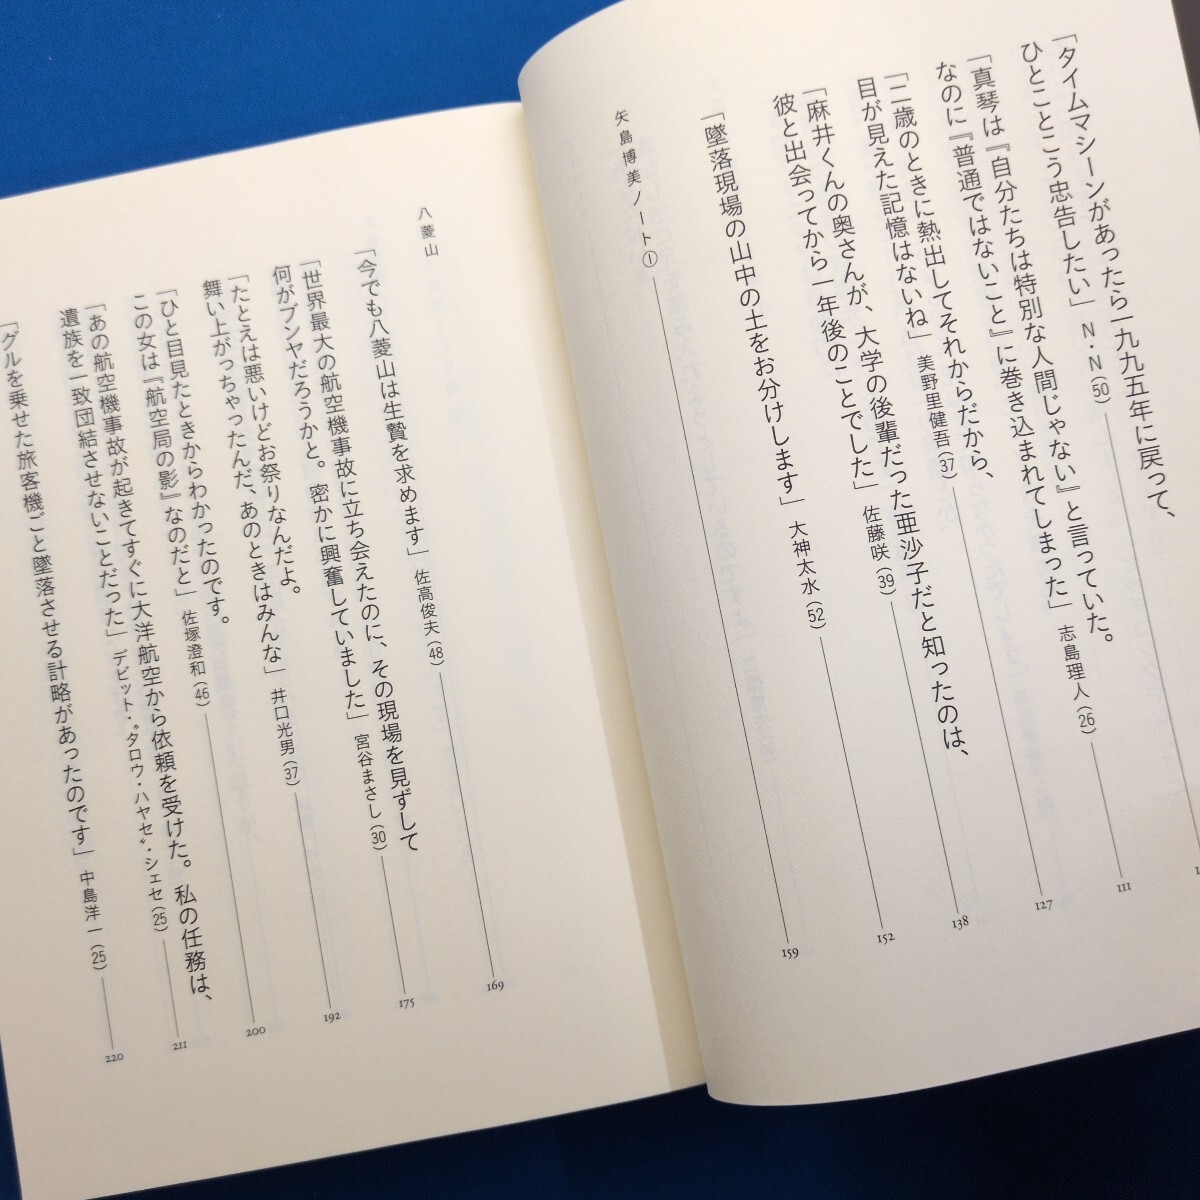 「タイムマシーンがあったら一九九五年に戻って、
ひとことこう忠告したい」 N・N(50)
「真琴は『自分たちは特別な人間じゃない』と言っていた。
なのに『普通ではないこと』に巻き込まれてしまった」 志島理人(26) 111
「二歳のときに熱出してそれからだから、
目が見えた記憶はないね」 美野里健吾(37) 127
「麻井くんの奥さんが、大学の後輩だった亜沙子だと知ったのは、
彼と出会ってから一年後のことでした」 佐藤咲(39) 138
「墜落現場の山中の土をお分けします」 大神太水(52) 152
矢島博美ノート① 159
八菱山
「今でも八菱山は生贄を求めます」 佐高俊夫(48) 169
「世界最大の航空機事故に立ち会えたのに、その現場を見ずして
何がブンヤだろうかと。密かに興奮していました」 宮谷まさし(30) 175
「たとえは悪いけどお祭りなんだよ。
舞い上がっちゃったんだ、あのときはみんな」 井口光男(37) 192
「ひと目見たときからわかったのです。
この女は『航空局の影』なのだと」 佐塚澄和(46) 200
「あの航空機事故が起きてすぐに大洋航空から依頼を受けた。私の任務は、
遺族を一致団結させないことだった」 デビット・〝タロウ・ハヤセ〟・シェセ(25) 211
「グルを乗せた旅客機ごと墜落させる計略があったのです」 中島洋一(25) 220